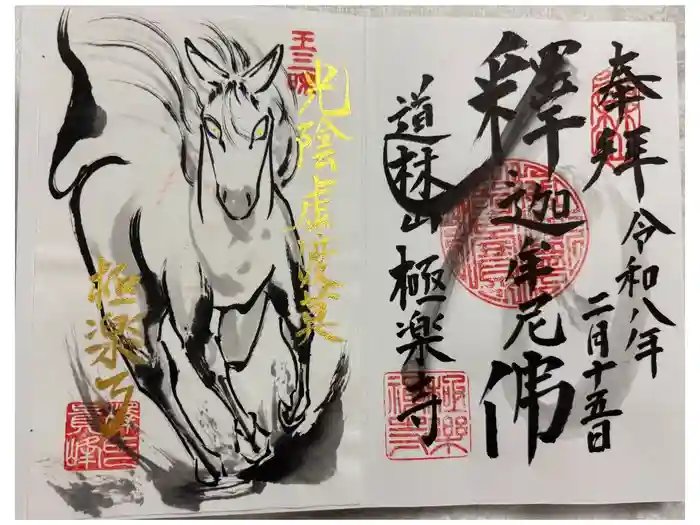 奉拝
令和八年
二月十五日
釋迦牟尼佛
道林山 極楽寺
光陰虚度莫
極楽